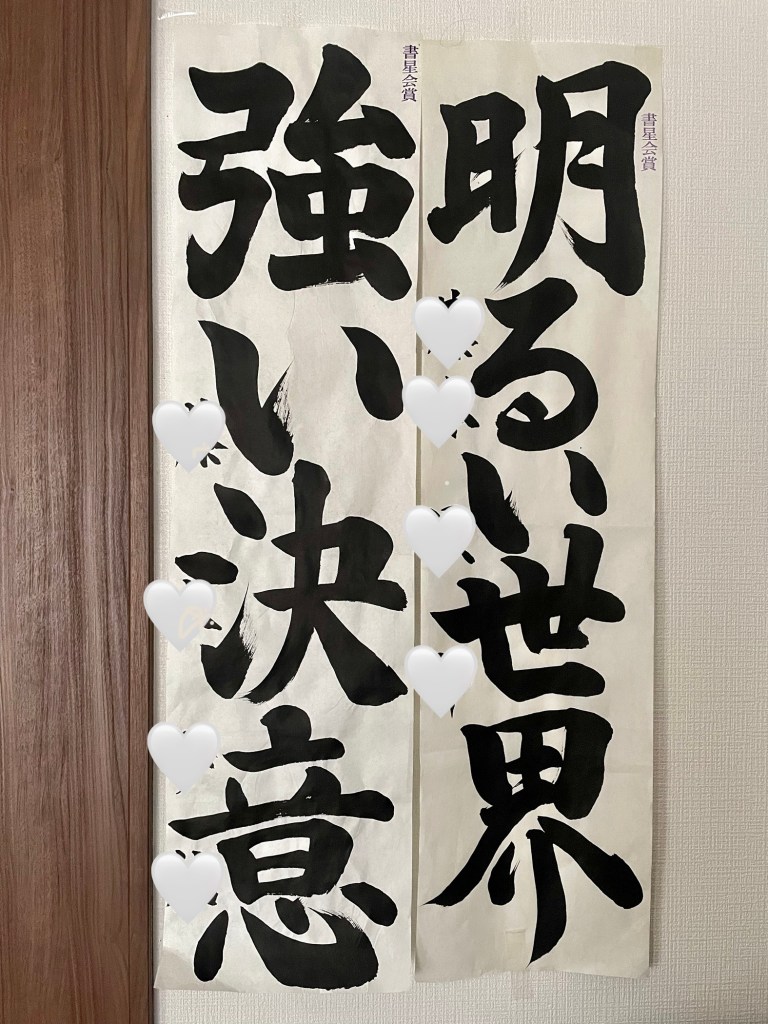 明るい世界
書星会賞
強い決意
書星会賞